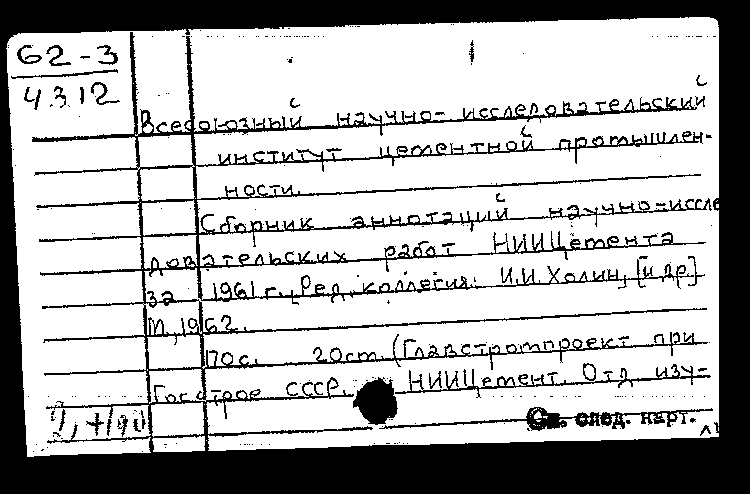 62-3
4.3.12
Всесоюзный научно-исследовательский
институт цементной промышлен-
ности.
Сборник аннотаций научно-иссле
довательских работ НИИЦемента
за 1961 г. [Ред. коллегия: И.И. Холин, [и др.]
М., 1962.
170 с. 20 см. (Главстромпроект при
Госстрое СССР. НИИЦемент. Отд. изу-
См. след. карт.